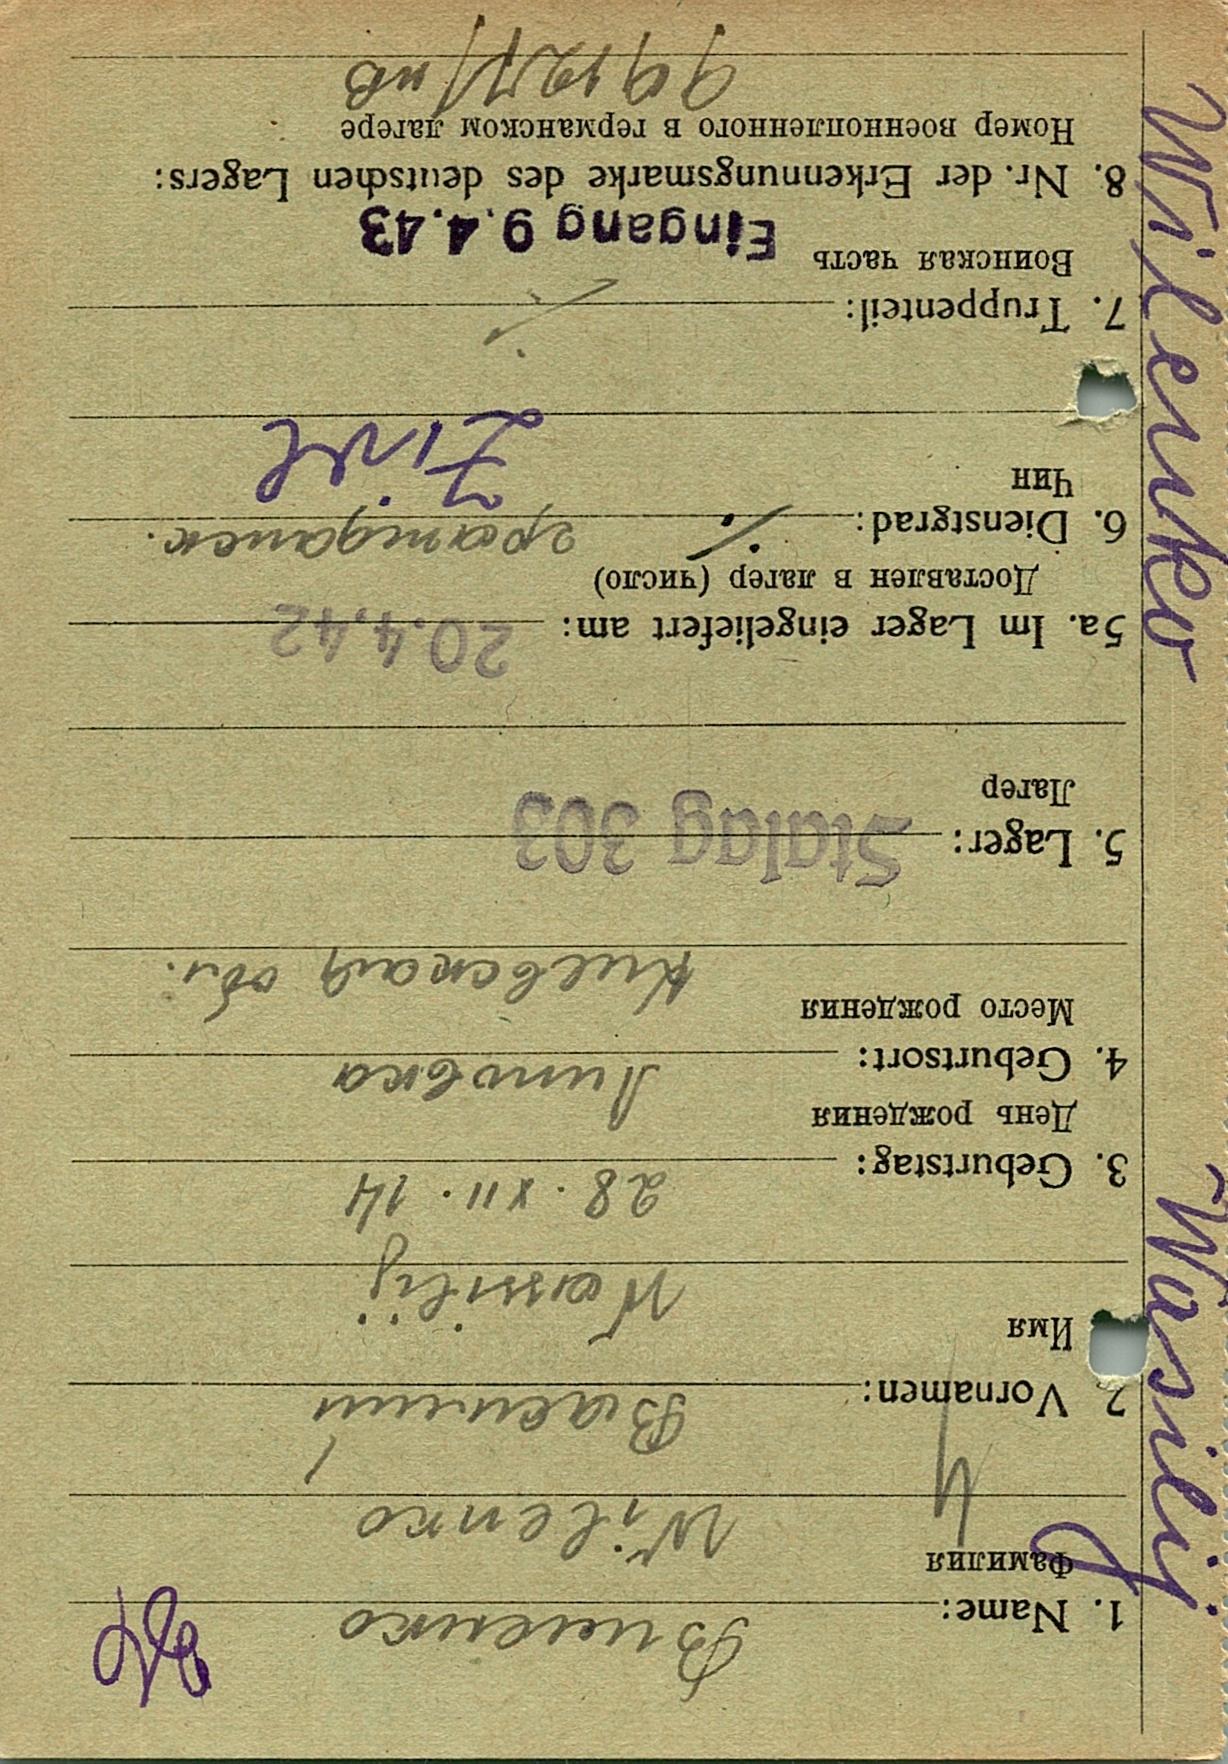 Wilenko Wasilij
1. Name: Виленко
Фамилия
Wilenko
2 Vornamen: Василий
Имя
Wasilij
3. Geburtstag: 28. XII. 14
День рождения
4. Geburtsort: Липовка
Место рождения
Киевская обл.
5. Lager: Stalag 303
Лагер
5a. Im Lager eingeliefert am: 20.4.42
Доставлен в лагер (число)
6. Dienstgrad: гражданск.
Чин
Zivil
7. Truppenteil:
Воинская часть
Eingang 9.4.43
8. Nr. der Erkennungsmarke des deutschen Lagers:
Номер военнопленного в германском лагере